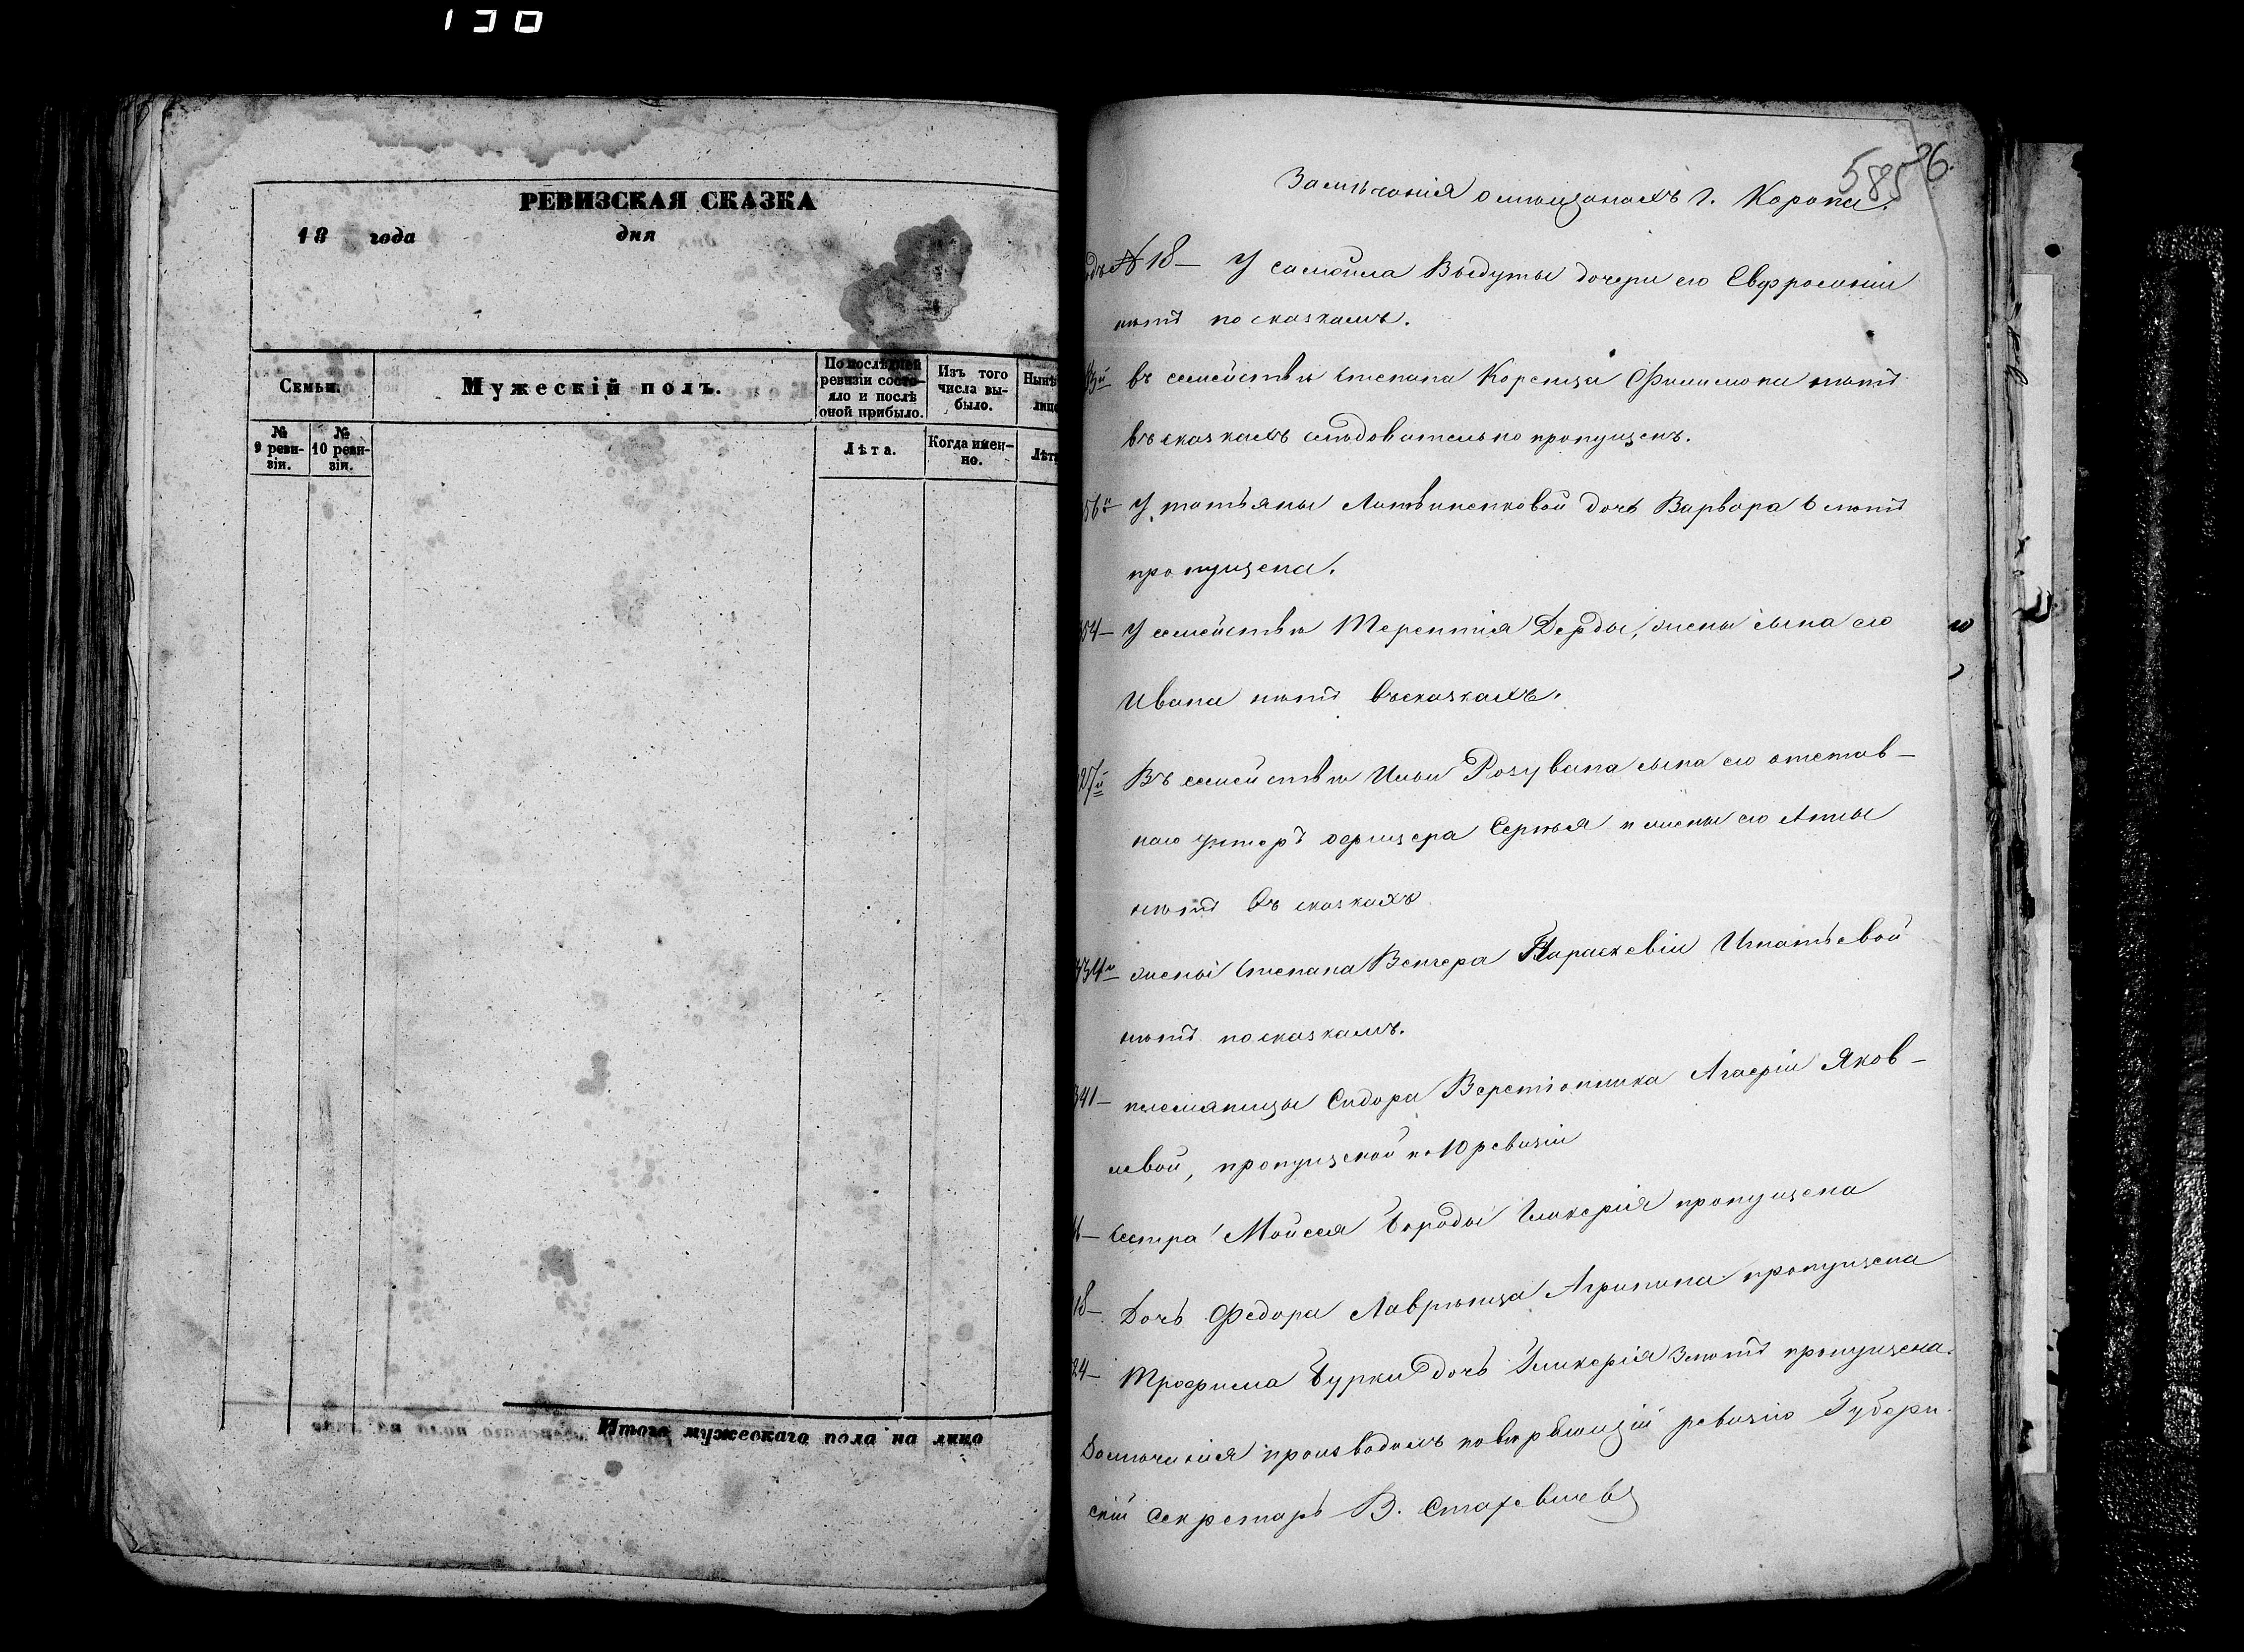 130
РЕВИЗСКАЯ СКАЗКА
18 года дня
Семьи.
Мужескій полъ.
По последней ревизіи состо-
яло и послѣ оной прибыло.
Изъ того числа вы-
было.
Нын
лиц
№ 9 реви-
зіи.
№ 10 реви-
зіи.
Лѣта.
Когда имен-
но.
Лѣт
Итого мужескаго пола на лицо
585
Замѣчанія о мѣщанахъ г. Коропа.
№ 18 — У Самойла Выдуты дочери его Евфросиніи
нѣтъ по сказкамъ.
въ семействѣ Степана Коренца Филимона нѣтъ
въ сказкахъ слѣдовательно пропущенъ.
У Татьяны Литвиненковой дочь Варвара 6 лѣтъ
пропущена.
У семействѣ Терентія Дерды, жены сына его
Ивана нѣтъ въ сказкахъ.
Въ семействѣ Ильи Розувана сына его отстав-
наго унтеръ офицера Сергѣя и жены его Анны
нѣтъ въ сказкахъ
жены Степана Венгера Параскевіи Игнатьевой
нѣтъ по сказкамъ.
341 — племяницы Сидора Веретіонника Агафіи Яков-
левой, пропущеной по 10 ревизіи
Сестра Мойсея Бороды Гликерія пропущена
18 — Дочь Федора Лаврѣнца Агрипина пропущена
24 — Трофима Бурки дочь Гликерія 3 лѣтъ пропущена.
производилъ повѣрявшій ревизію Губерн-
скій Секретарь В.